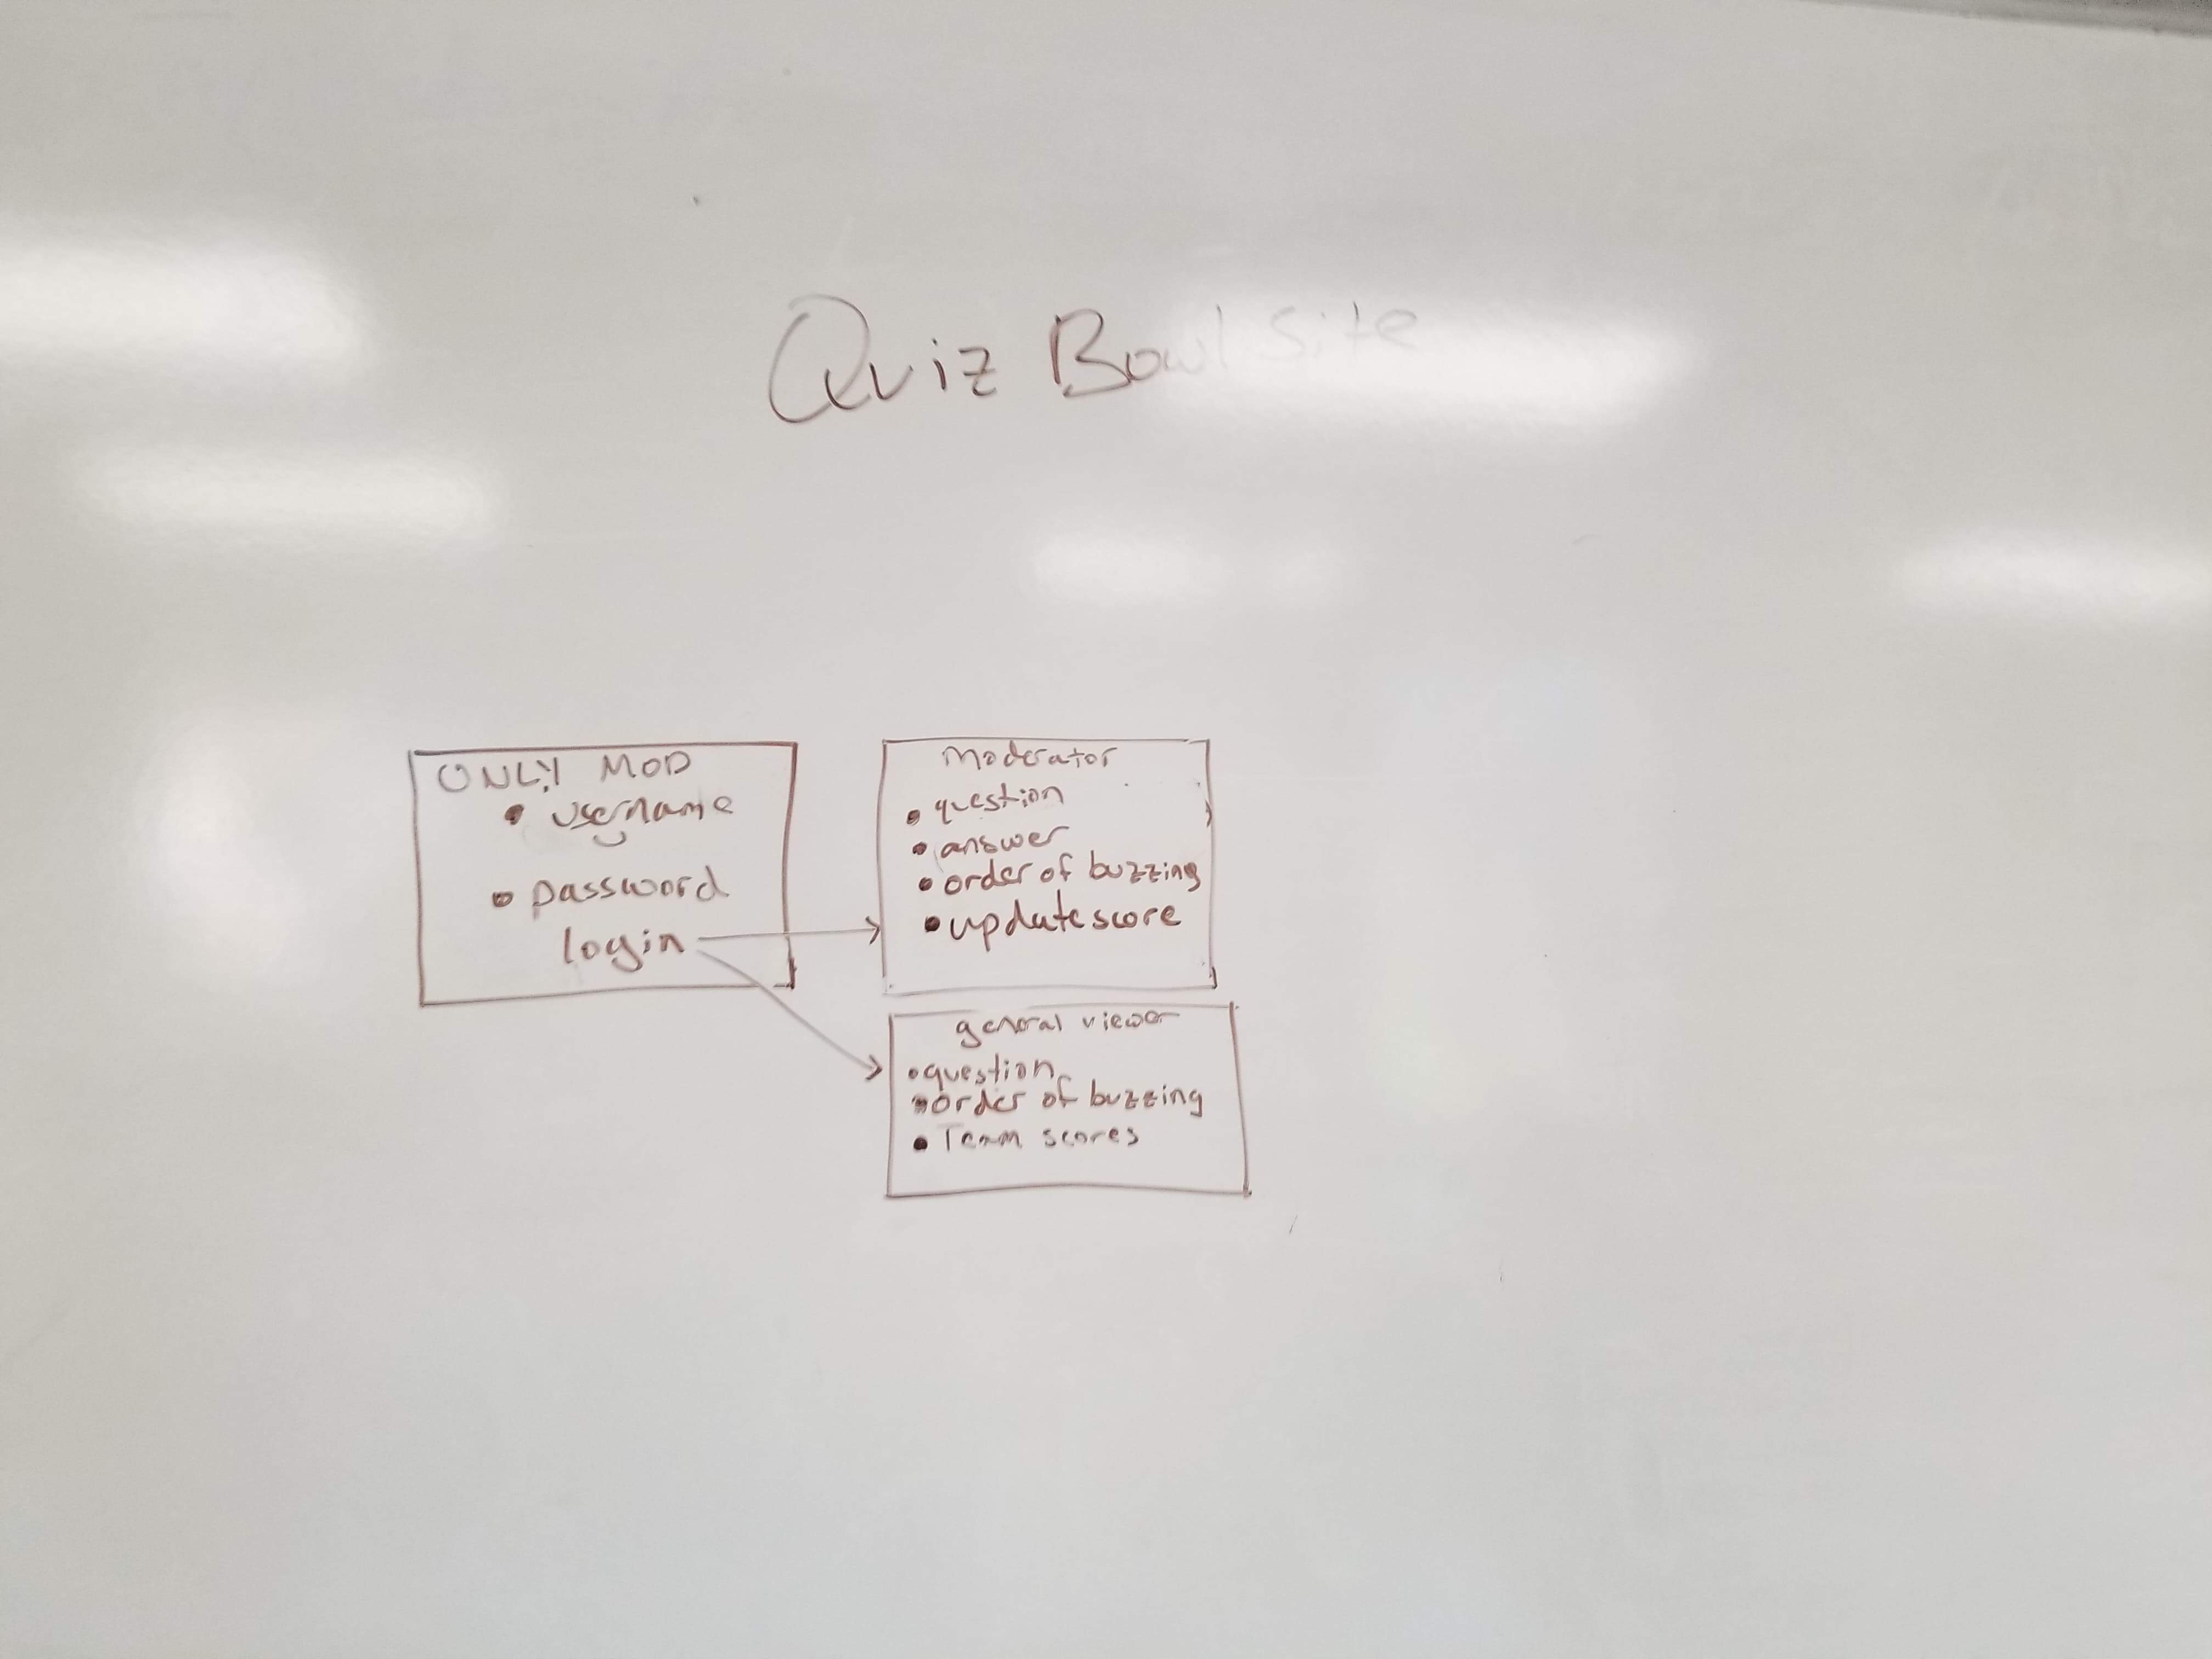 Quiz Bowl Site
ONLY MOD
• username
• password
login
Moderator
• question
• answer
• order of buzzing
• update score
general viewer
• question
• order of buzzing
• Team scores